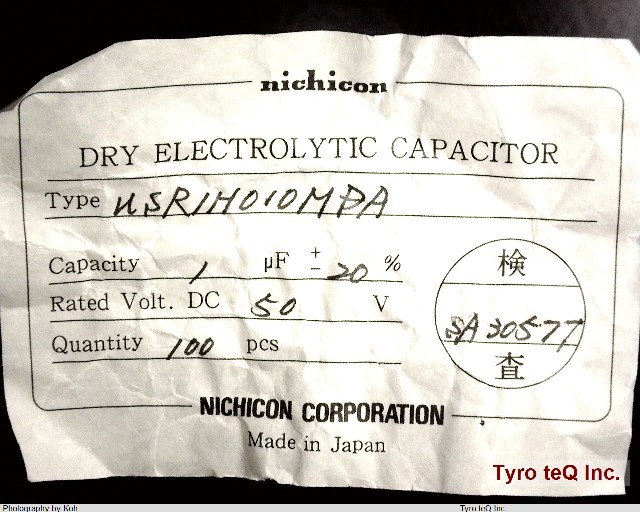 nichicon
DRY ELECTROLYTIC CAPACITOR
Type USR1H010MPA
Capacity 1 μF ± 20 %
Rated Volt. DC 50 V
Quantity 100 pcs
検
SA30577
査
NICHICON CORPORATION
Made in Japan
Tyro teQ Inc.
Photography by Koh
Tyro teQ Inc